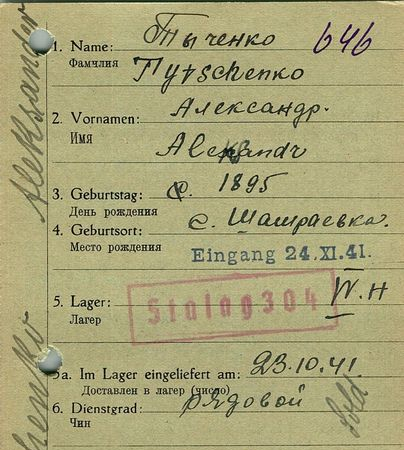 1. Name: Тыченко 646
Фамчлия Tytschenko
2. Vornamen: Александр.
Имя Alexandr
3. Geburtstag: 1895
День рождения
4. Geburtsort: с. Шашраевка.
Место рождения
Eingang 24. XI. 41.
5. Lager: Stalag 304 IV. H
Лагер
5a. Im Lager eingeliefert am: 23.10.41.
Доставлен в лагер (число)
6. Dienstgrad: рядовой Sold
Чин
Aleksander